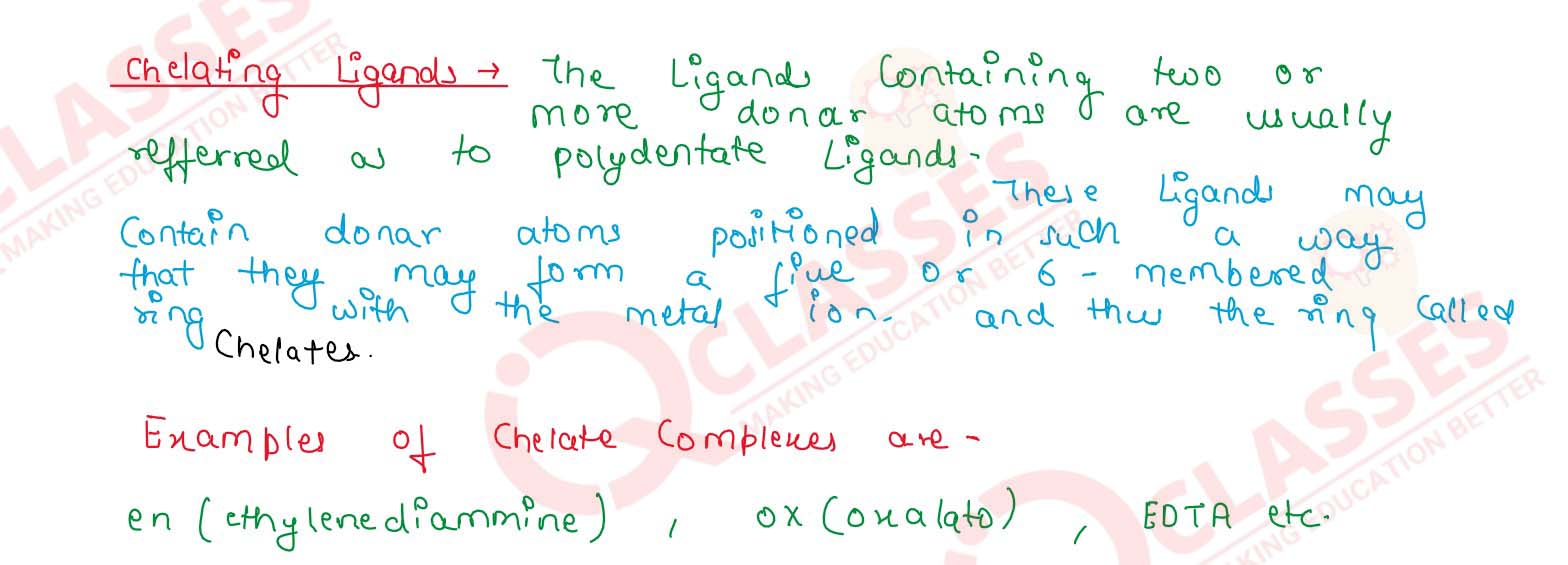 Chelating Ligands → The Ligands Containing two or
more donar atoms are usually
refferred as to polydentate Ligands.
These Ligands may
Contain donar atoms positioned in such a way
that they may form a five or 6 - membered
ring with the metal ion. and thus the ring called
Chelates.
Examples of Chelate Complexes are -
en (ethylenediammine) , ox (oxalato) , EDTA etc.
CLASSES
MAKING EDUCATION BETTER
iQ CLASSES
MAKING EDUCATION BETTER
CLASSES
MAKING EDUCATION BETTER